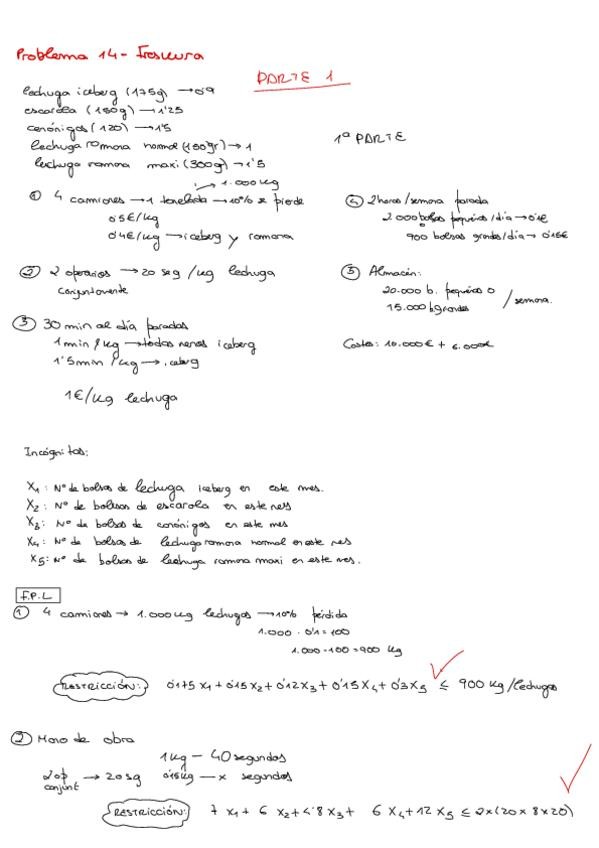 Problema 14 - Frescura
PARTE 1
lechuga iceberg (175g) → 0'9
escarola (150g) → 1'25
canónigos (120) → 1'5
lechuga romana normal (150gr) → 1
lechuga romana maxi (300g) → 1'5
1ª PARTE
→ 1.000 kg
① 4 camiones → 1 tonelada → 10% se pierde
0'5€/kg
0'4€/kg → iceberg y romana
② 2 operarios → 20 seg /kg lechuga
conjuntamente
③ 30 min al día paradas
1 min / kg → todas menos iceberg
1'5 min / kg → iceberg
1€/kg lechuga
④ 2 horas / semana parada
2.000 bolsas pequeñas /día → 0'1€
900 bolsas grandes/día → 0'15€
⑤ Almacén:
20.000 b. pequeñas o
15.000 b. grandes
/ semana.
Costes: 10.000€ + 6.000€
Incógnitas:
X1: Nº de bolsas de lechuga iceberg en este mes.
X2: Nº de bolsas de escarola en este mes
X3: Nº de bolsas de canónigos en este mes
X4: Nº de bolsas de lechuga romana normal en este mes
X5: Nº de bolsas de lechuga romana maxi en este mes.
F.P.L
① 4 camiones → 1.000 kg lechugas → 10% pérdida
1.000 · 0'1 = 100
1.000 - 100 = 900 kg
RESTRICCIÓN: 0'175 X1 + 0'15 X2 + 0'12 X3 + 0'15 X4 + 0'3 X5 ≤ 900 kg/lechugas
② Mano de obra
1 kg — 40 segundos
2 op conjunt → 20 sg 0'15 kg — x segundos
RESTRICCIÓN: 7 X1 + 6 X2 + 4'8 X3 + 6 X4 + 12 X5 ≤ 2x(20 x 8 x 20)